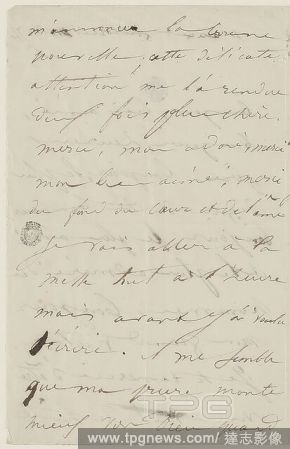 m'annoncer la bonne
nouvelle, cette délicate
attention me l'a rendue
deux fois plus chère.
merci, mon adoré, merci
mon bien aimé, merci
du fond du cœur et de l'âme
Je vais aller à la
messe tout à l'heure
mais avant j'ai voulu
t'écrire. il me semble
que ma prière monte
mieux vers Dieu quand
TPG
www.tpgnews.com 達志影像